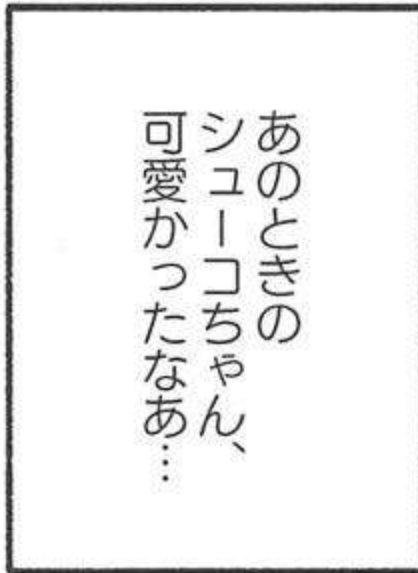 あのときの
シューコちゃん、
可愛かったなあ…